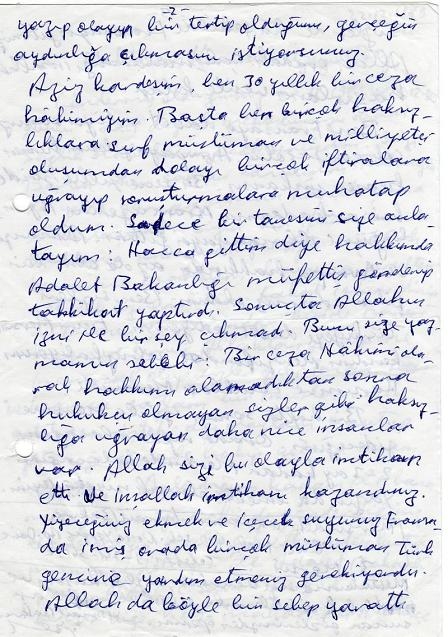 -2-
yazıp olayın bir tertip olduğunu, gerçeğin
aydınlığa çıkmasını istiyorsunuz.
Aziz kardeşim, ben 30 yıllık bir ceza
hakimiyim. Başta ben birçok haksız-
lıklara sırf müslüman ve milliyetçi
oluşumdan dolayı birçok iftiralara
uğrayıp soruşturmalara muhatap
oldum. Sadece bir tanesini size anla-
tayım: Hacca gittim diye hakkımda
Adalet Bakanlığı müfettiş gönderip
tahkikat yaptırdı. Sonuçta Allahın
izni ile bir şey çıkmadı. Bunu size yaz-
mamın sebebi: Bir ceza Hâkimi ola-
rak hakkımı alamadıktan sonra
hukukcu olmayan sizler gibi haksız-
lığa uğrayan daha nice insanlar
var. Allah sizi bu olayla imtihan
etti ve inşallah imtihanı kazandınız.
Yiyeceğiniz ekmek ve içecek suyunuz Fransa-
da imiş orada birçok müslüman Türk
gencine yardım etmeniz gerekiyordu.
Allah da böyle bir sebep yarattı